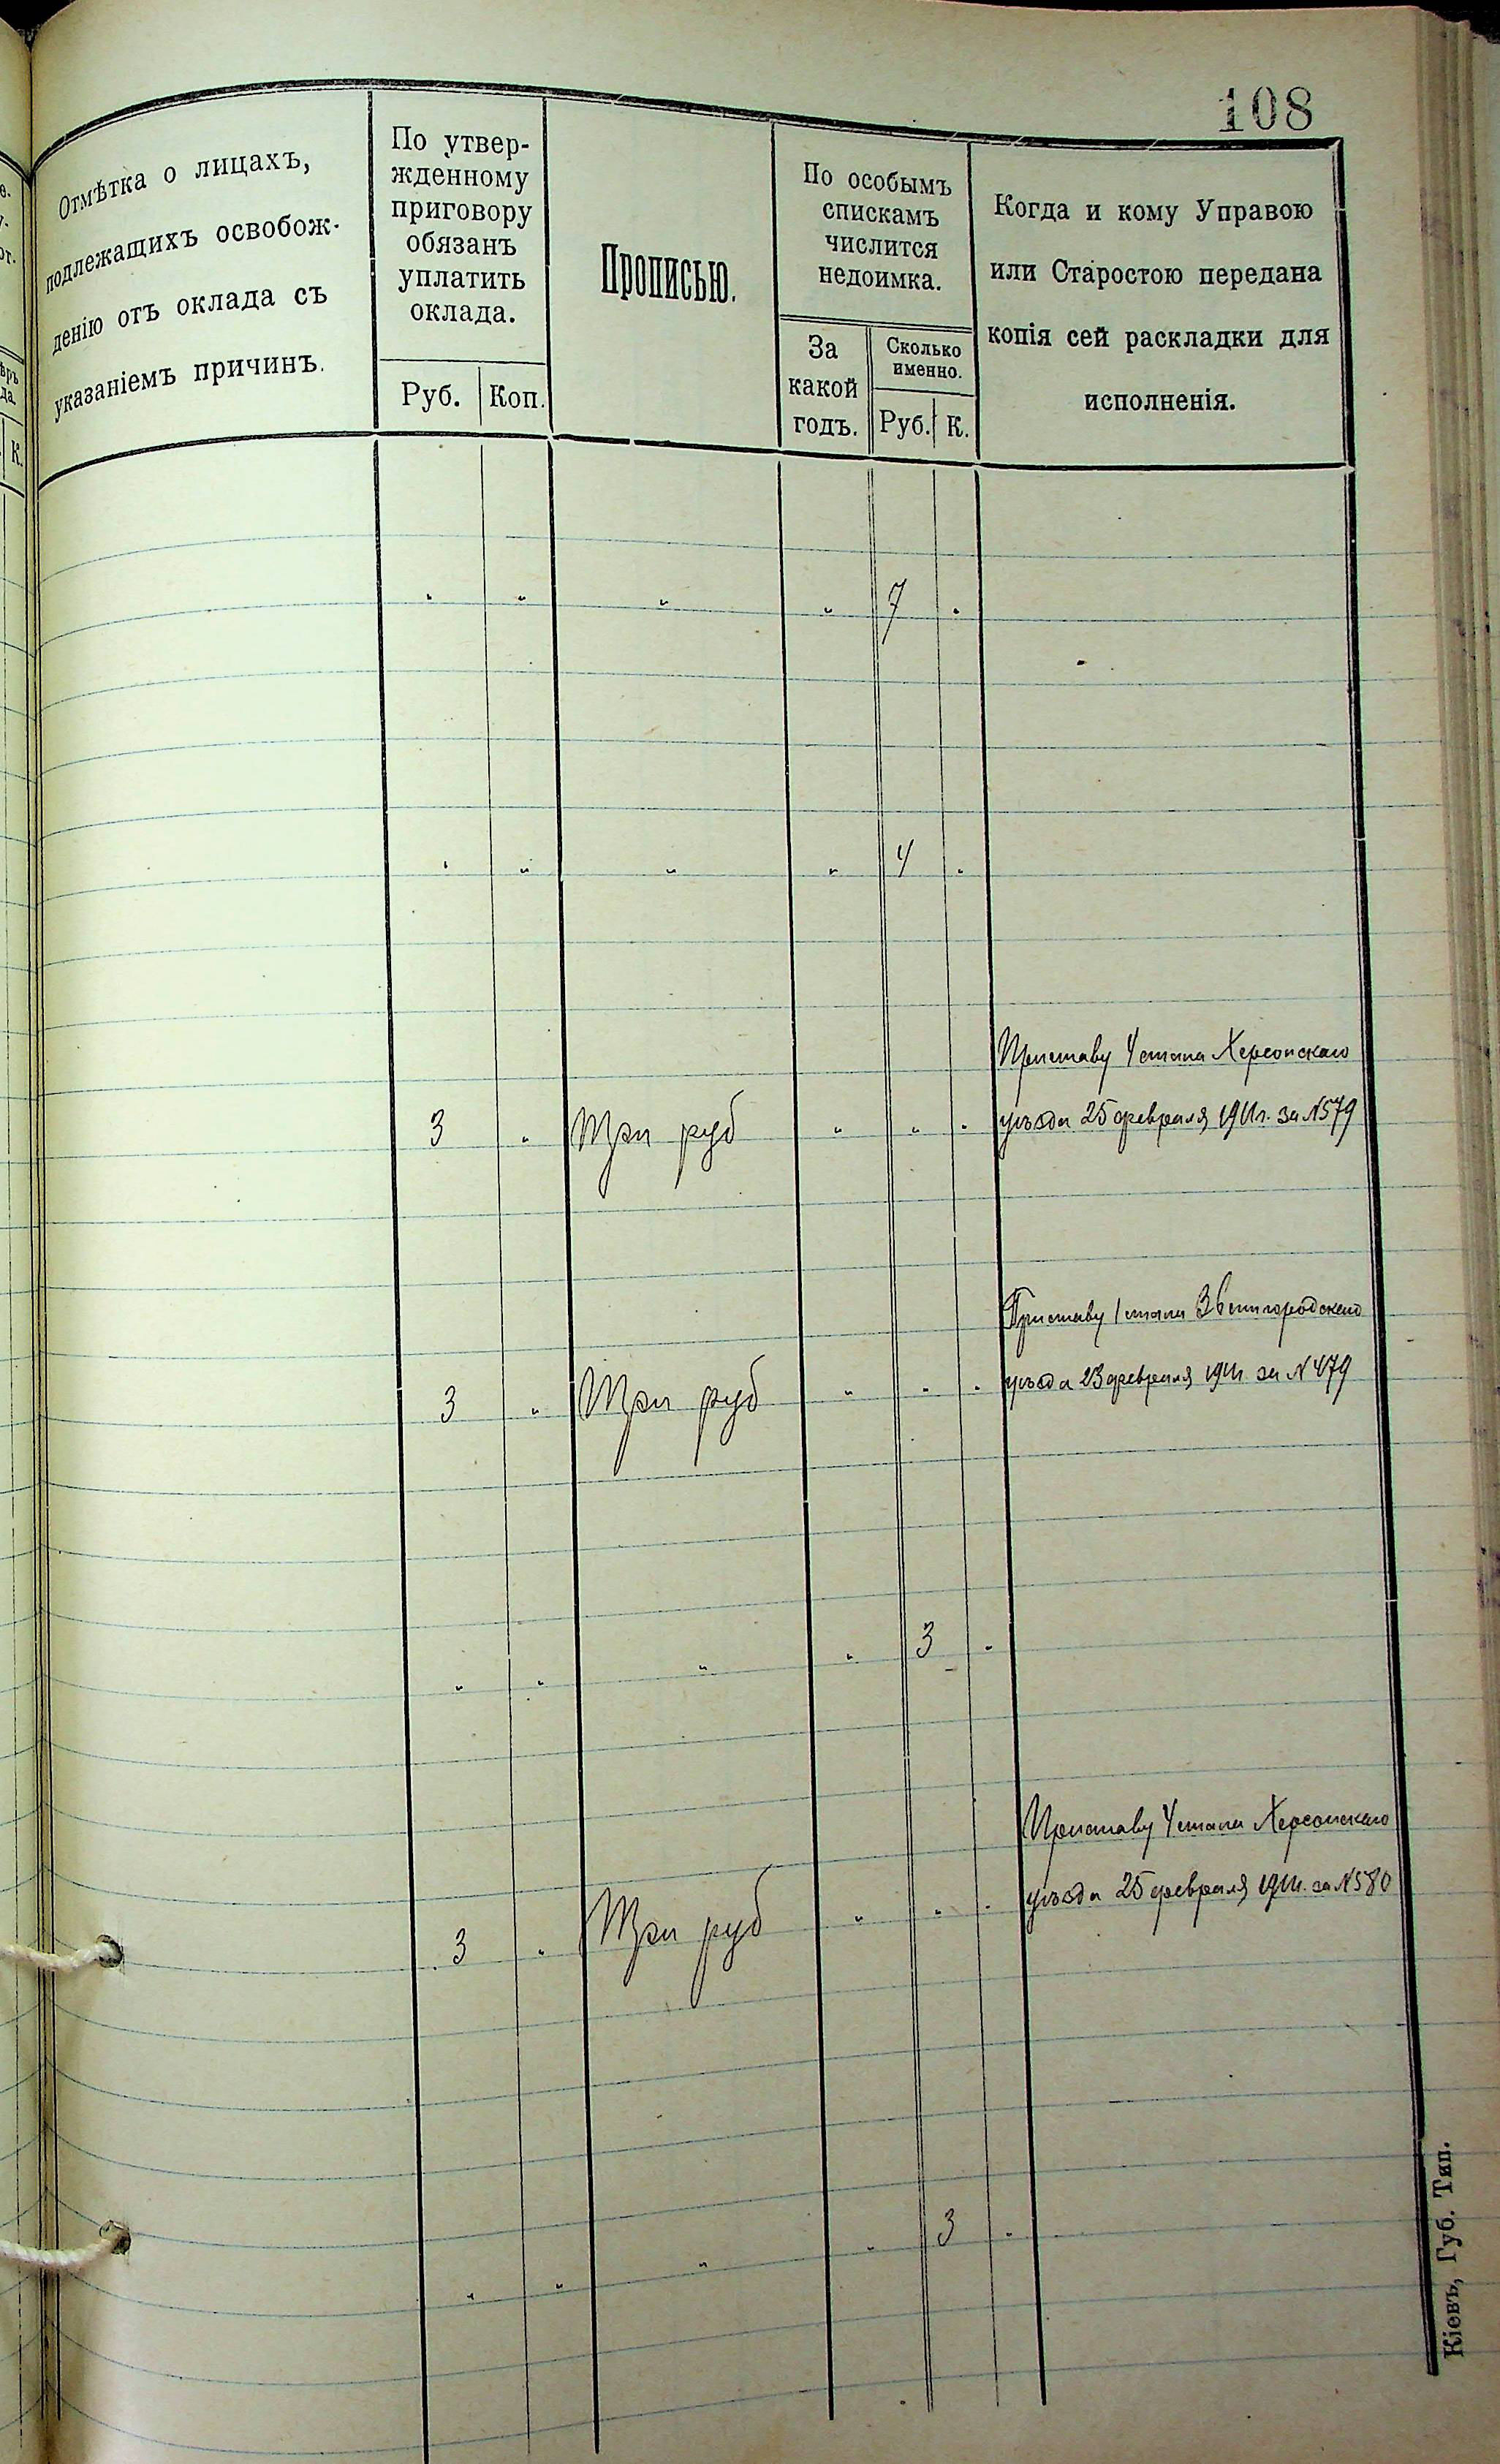 108
Отмѣтка о лицахъ,
подлежащихъ освобож-
денію отъ оклада съ
указаніемъ причинъ.
По утвер-
жденному
приговору
обязанъ
уплатить
оклада.
Руб.
Коп.
Прописью.
По особымъ
спискамъ
числится
недоимка.
За
какой
годъ.
Сколько
именно.
Руб.
К.
Когда и кому Управою
или Старостою передана
копія сей раскладки для
исполненія.
К.
" " " " 7 "
" " " " 4 "
Приставу 4 стана Херсонскаго
3 " Три руб " " " уѣзда 25 февраля 1911г. за №579
Приставу 1 стана Звенигородскаго
3 " Три руб " " " уѣзда 23 февраля 1911г. за №479
" " " " 3 "
Приставу 4 стана Херсонскаго
3 " Три руб " " " уѣзда 25 февраля 1911г. за №580
" " " " 3 "
Кіевъ, Губ. Тип.